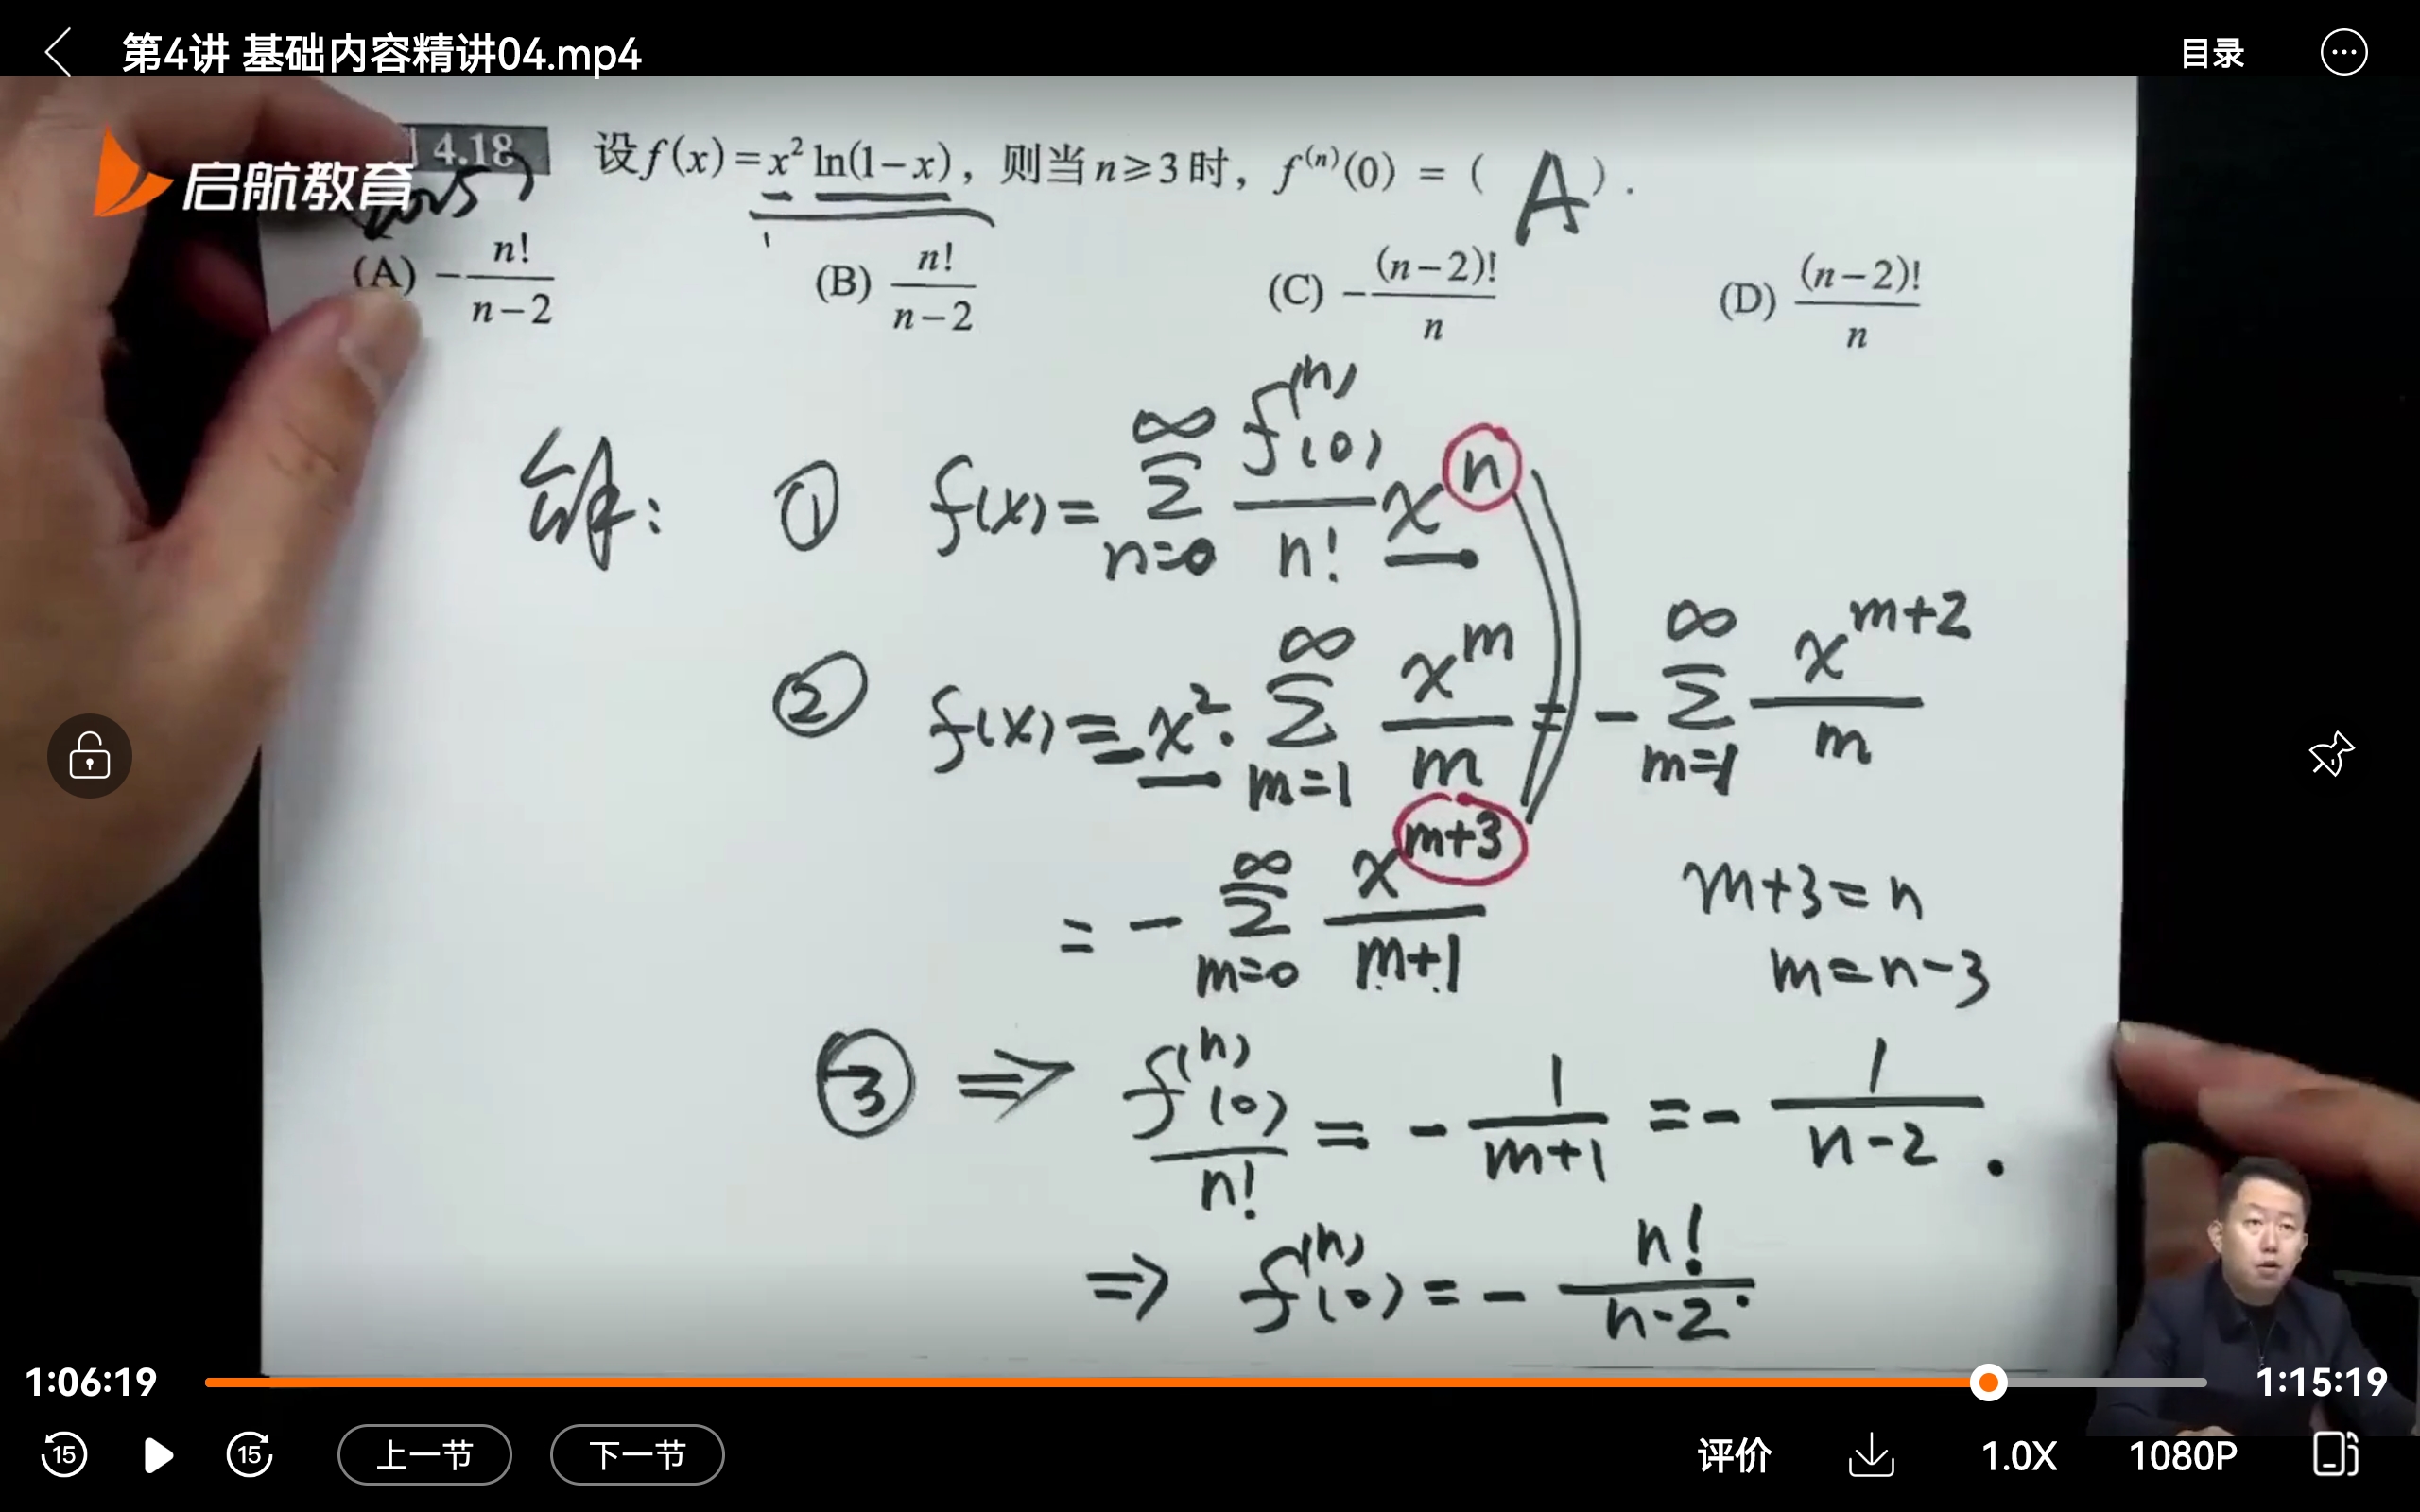 第4讲 基础内容精讲04.mp4
目录
启航教育
4.18 设f(x)=x²ln(1-x), 则当n≥3时, f⁽ⁿ⁾(0) = ( A ).
(A) -n!/(n-2) (B) n!/(n-2) (C) -(n-2)!/n (D) (n-2)!/n
解: ① f(x)= ∞ Σ n=0 f⁽ⁿ⁾(0)/n! xⁿ
② f(x)= -x²· ∞ Σ m=1 xᵐ/m = - ∞ Σ m=1 x^(m+2)/m
= - ∞ Σ m=0 x^(m+3)/(m+1)
m+3=n
m=n-3
③ ⇒ f⁽ⁿ⁾(0)/n! = - 1/(m+1) = - 1/(n-2).
⇒ f⁽ⁿ⁾(0) = - n!/(n-2).
1:06:19
1:15:19
15
15
上一节
下一节
评价
1.0X
1080P